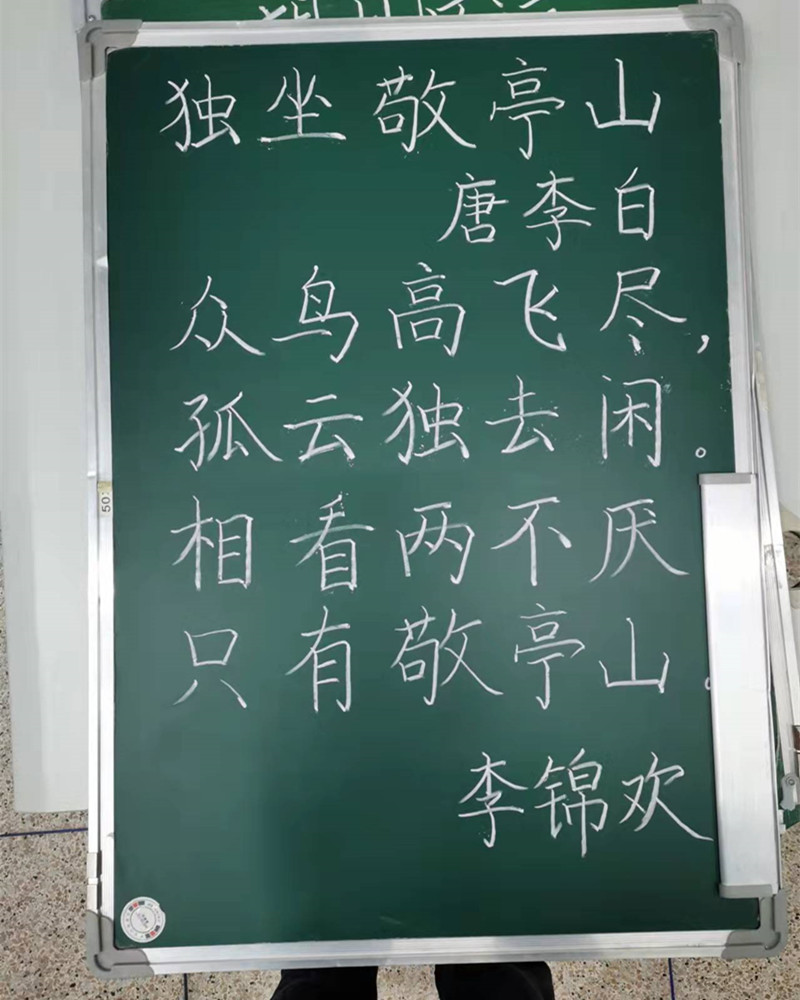 独坐敬亭山
唐李白
众鸟高飞尽，
孤云独去闲。
相看两不厌
只有敬亭山。
李锦欢
50: